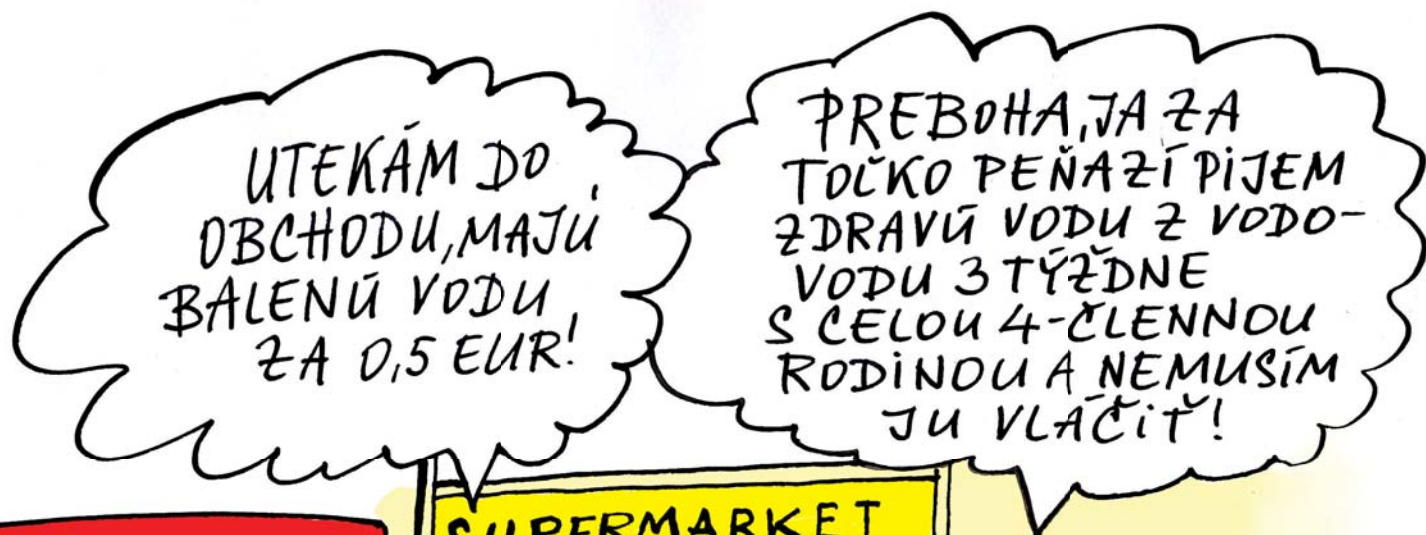 UTEKÁM DO
OBCHODU, MAJÚ
BALENÚ VODU
ZA 0,5 EUR!
PREBOHA, JA ZA
TOĽKO PEŇAZÍ PIJEM
ZDRAVÚ VODU Z VODO-
VODU 3 TÝŽDNE
S CELOU 4-ČLENNOU
RODINOU A NEMUSÍM
JU VLÁČIŤ!
SUPERMARKET